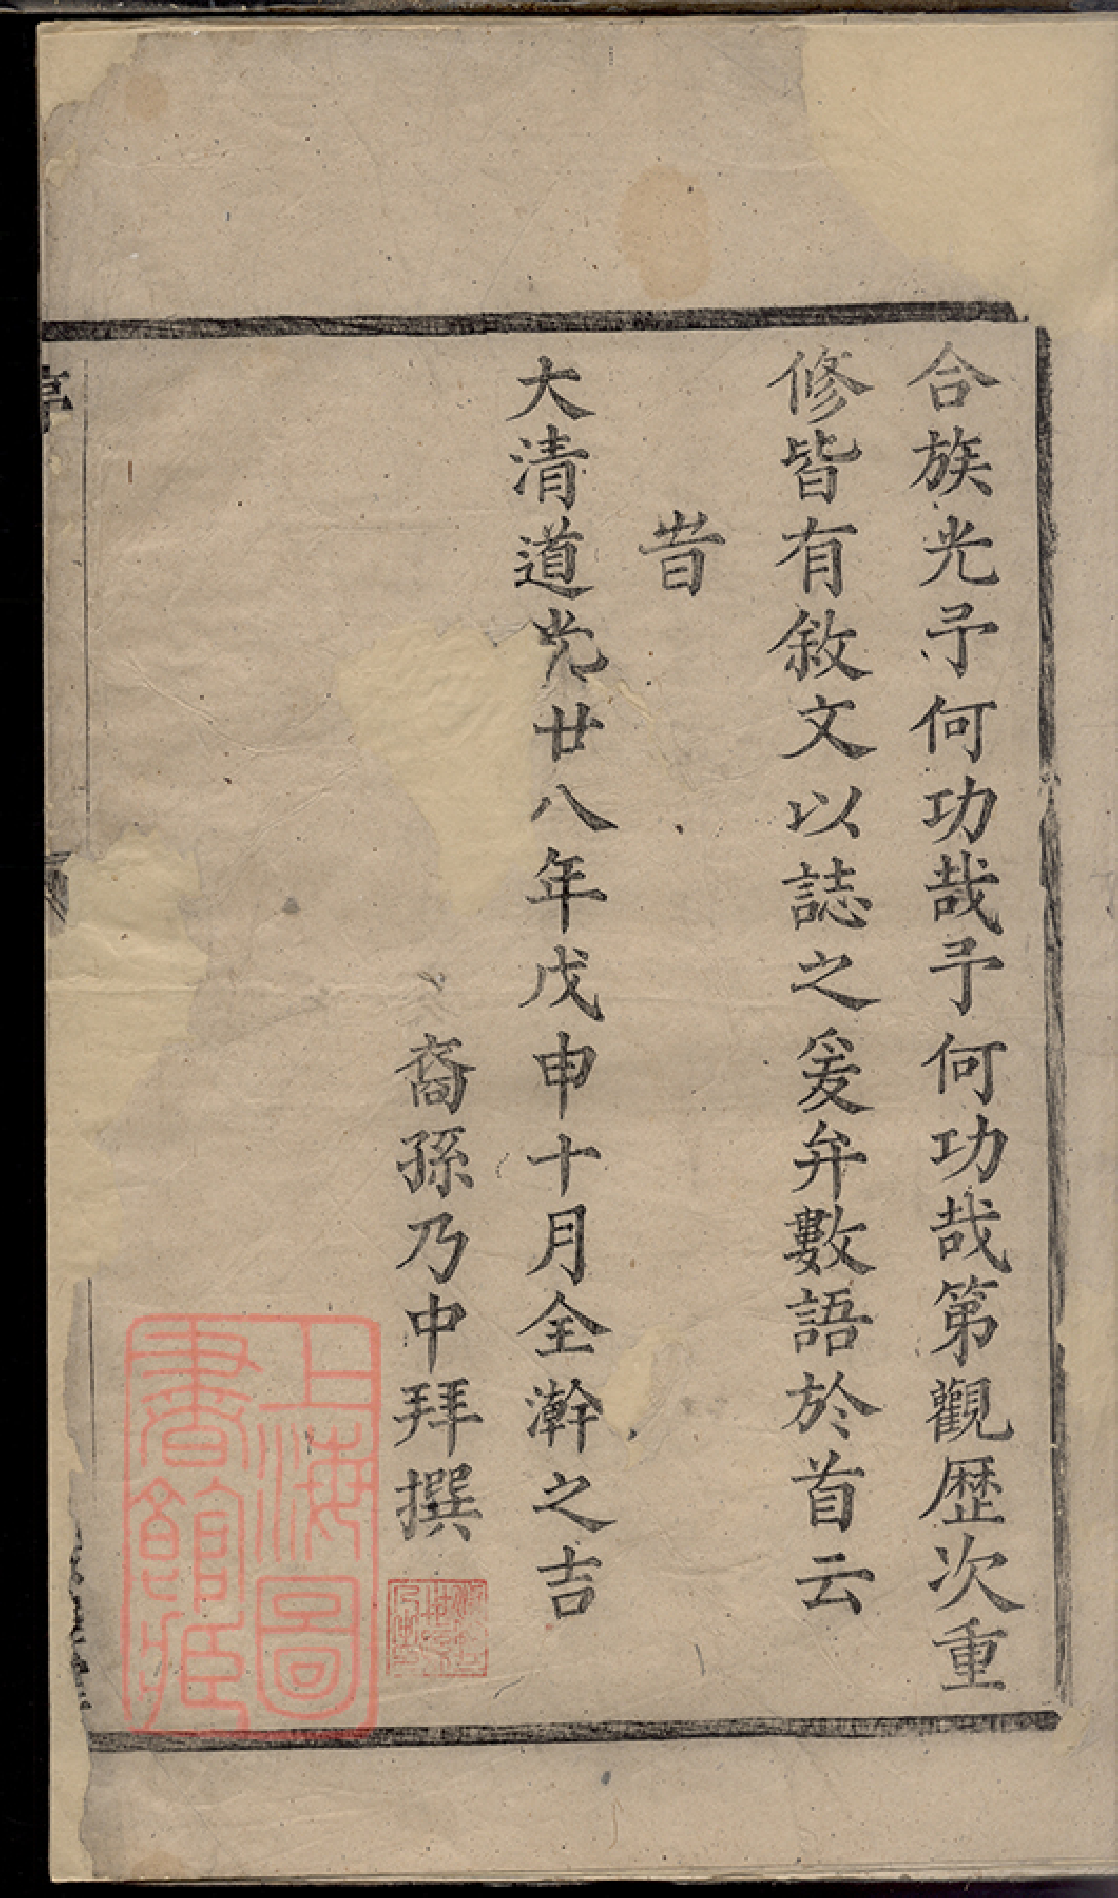 合族光予何功哉予何功哉第觀歴次重
修皆有敘文以誌之爰弁數語於首云
旹
大清道光廿八年戊申十月全澣之吉
裔孫乃中拜撰
上海圖
書館藏